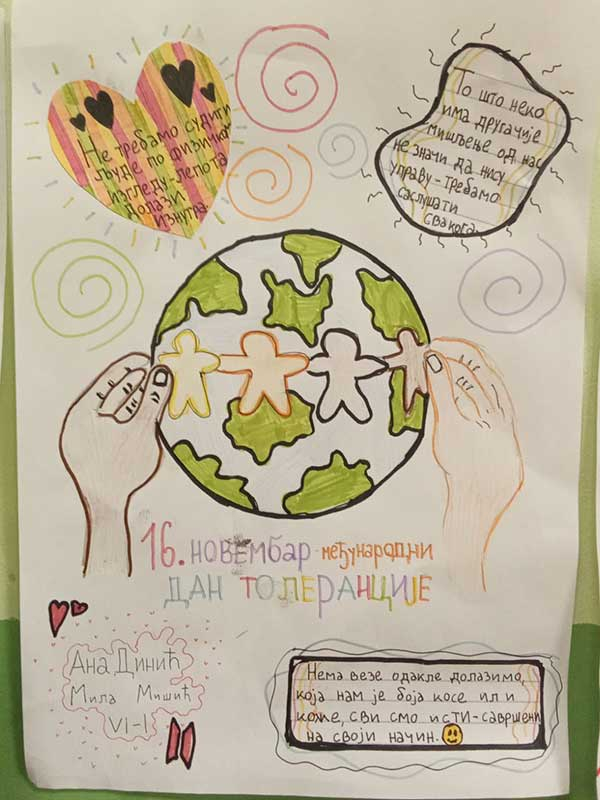 Не требамо судити
људе по физичком
изгледу-лепота
долази
изнутра.
То што неко
има другачије
мишљење од нас
не значи да нису
управу-требамо
саслушати
свакога.
16. новембар међународни
дан толеранције
Ана Динић
Мила Мишић
VI-1
Нема везе одакле долазимо,
која нам је боја косе или
коже, сви смо исти-савршени
на своји начин.